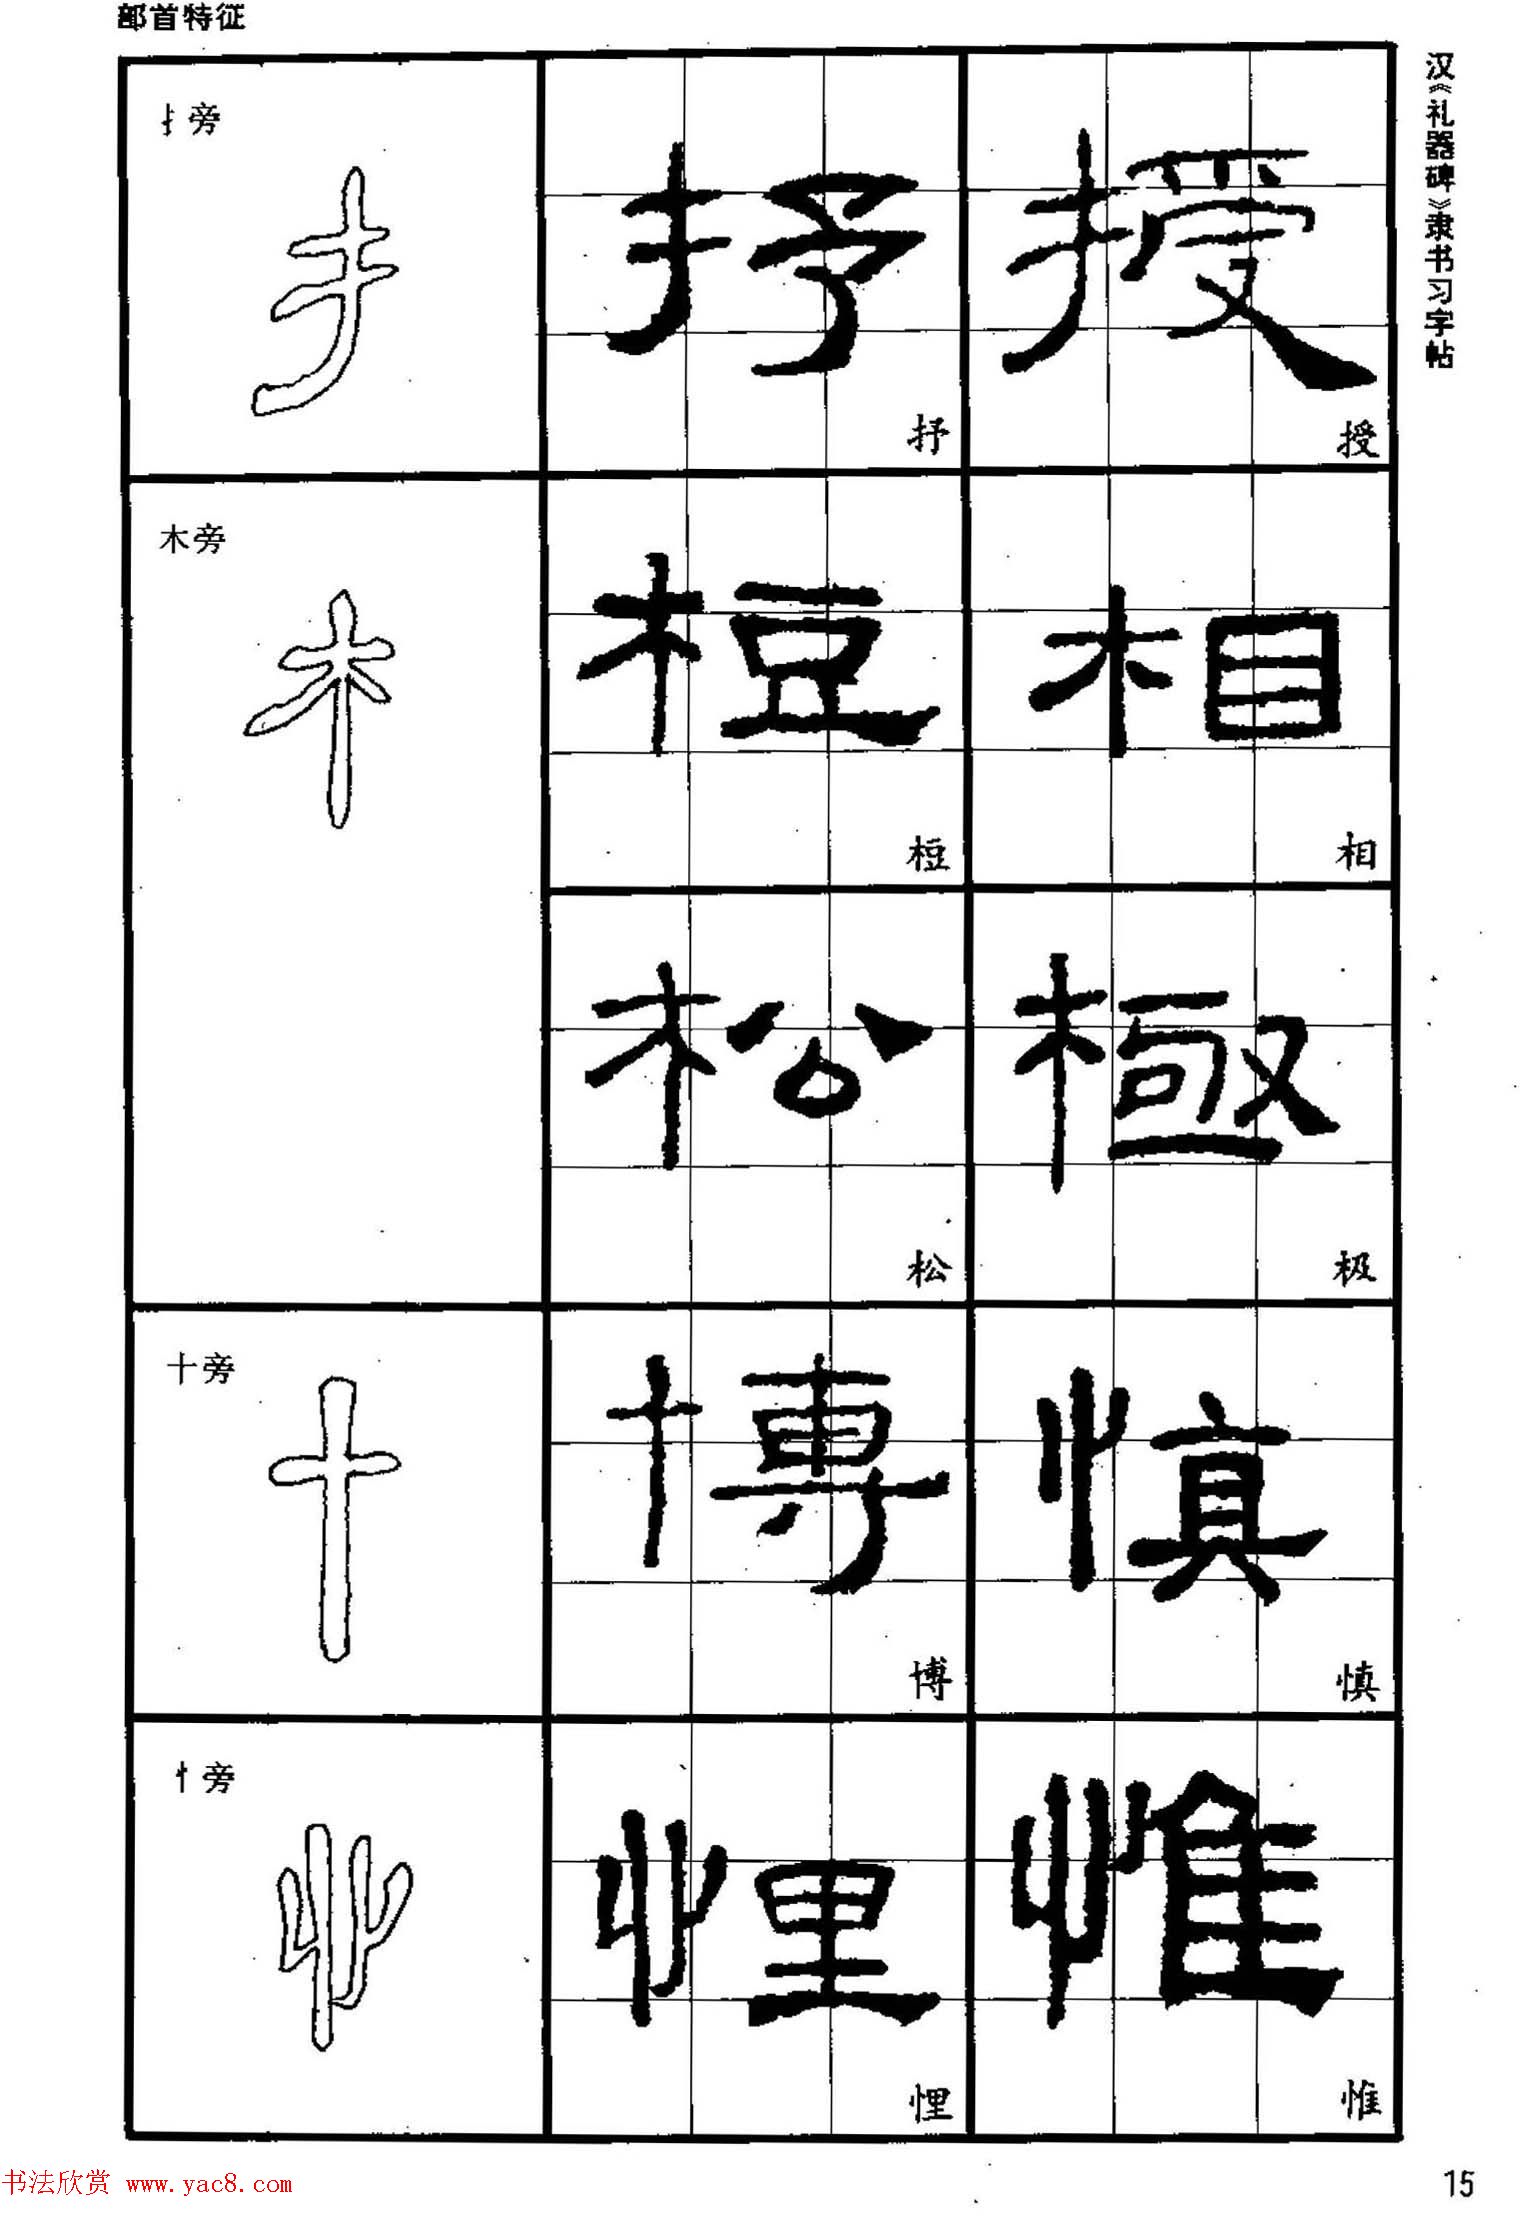 部首特征
汉《礼器碑》隶书习字帖
扌旁
抒 授
抒
授
木旁
梪 相
梪
相
松 極
松
极
十旁
博 慎
博
慎
忄旁
悝 惟
悝
惟
书法欣赏 www.yac8.com
15